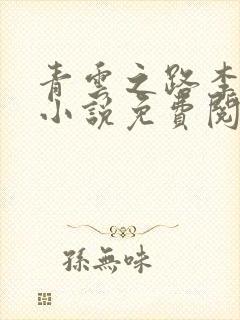 青雲之路李
小說免費閱
孫無味